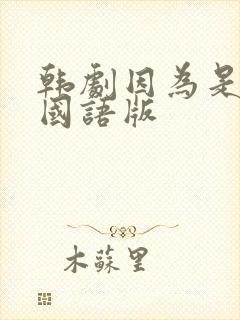 韩劇因為是
國語版
木蘇里